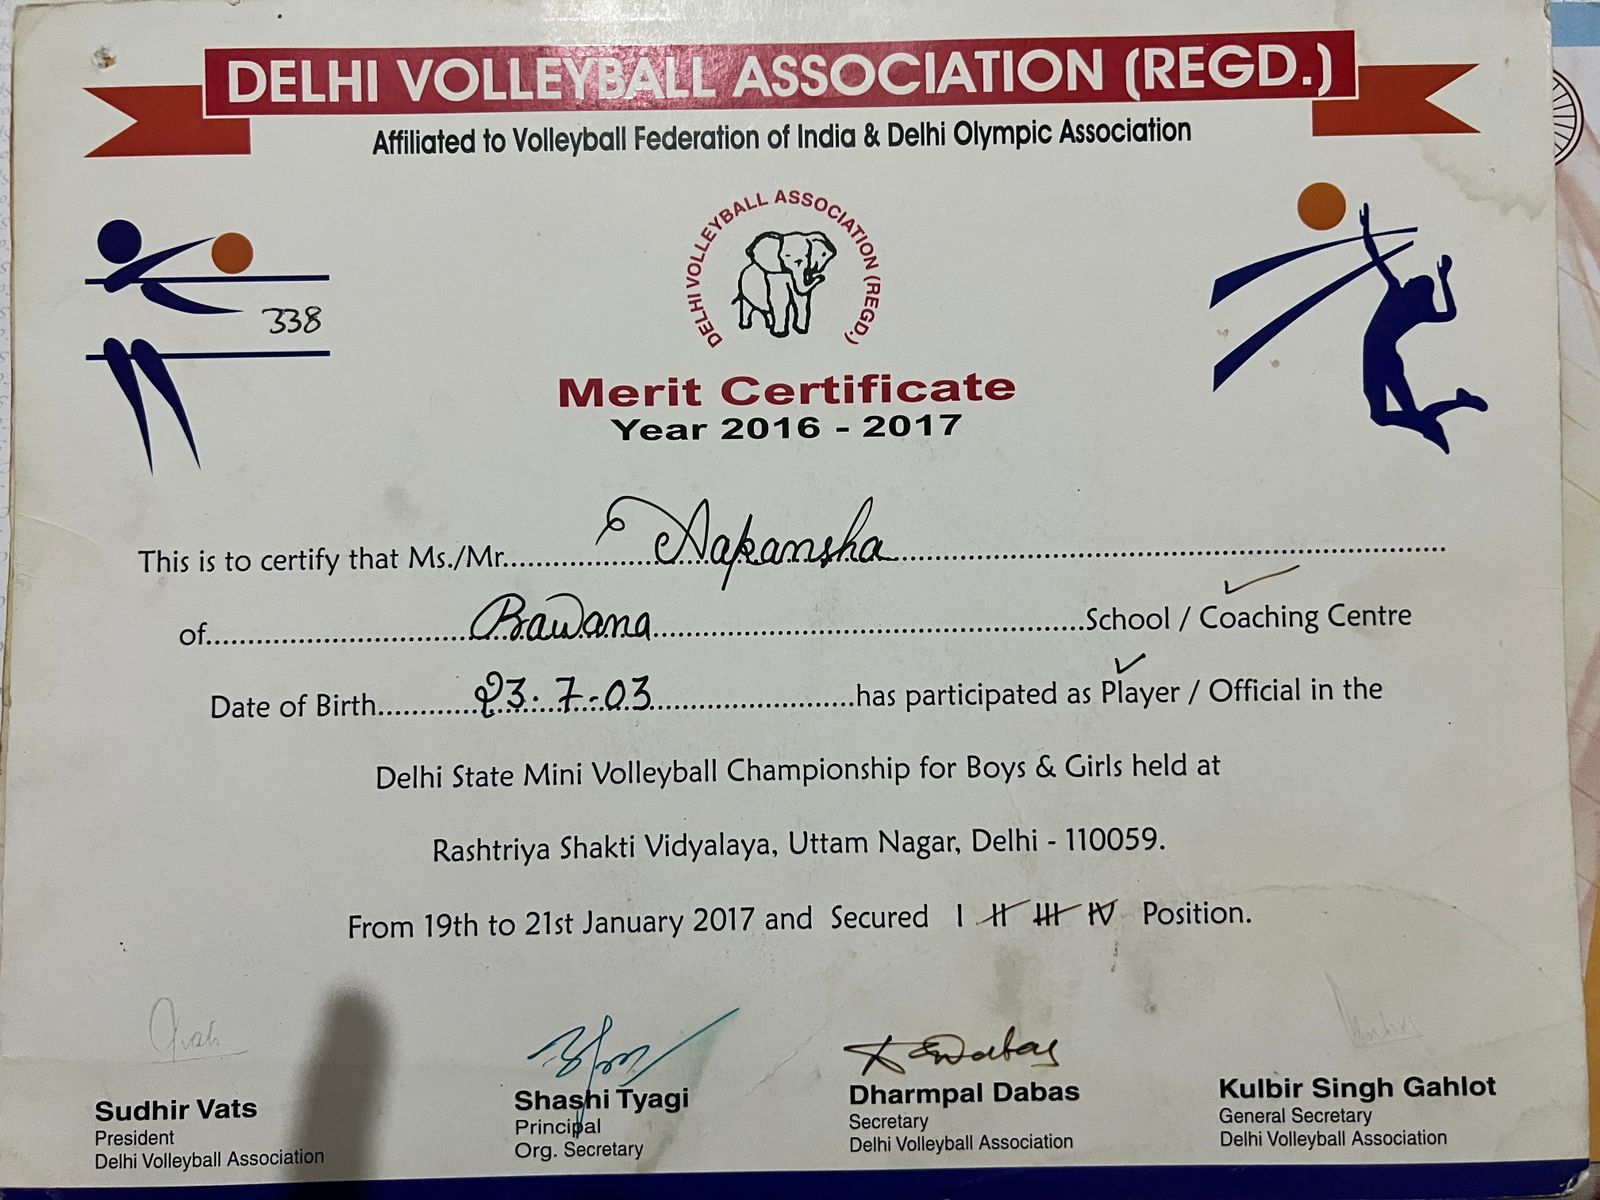 DELHI VOLLEYBALL ASSOCIATION (REGD.)
Affiliated to Volleyball Federation of India & Delhi Olympic Association
DELHI VOLLEYBALL ASSOCIATION (REGD.)
338
Merit Certificate
Year 2016 - 2017
This is to certify that Ms./Mr. Aakansha
of Bawana School / Coaching Centre
Date of Birth 23.7.03 has participated as Player / Official in the
Delhi State Mini Volleyball Championship for Boys & Girls held at
Rashtriya Shakti Vidyalaya, Uttam Nagar, Delhi - 110059.
From 19th to 21st January 2017 and Secured I II III IV Position.
Sudhir Vats
President
Delhi Volleyball Association
Shashi Tyagi
Principal
Org. Secretary
Dharmpal Dabas
Secretary
Delhi Volleyball Association
Kulbir Singh Gahlot
General Secretary
Delhi Volleyball Association